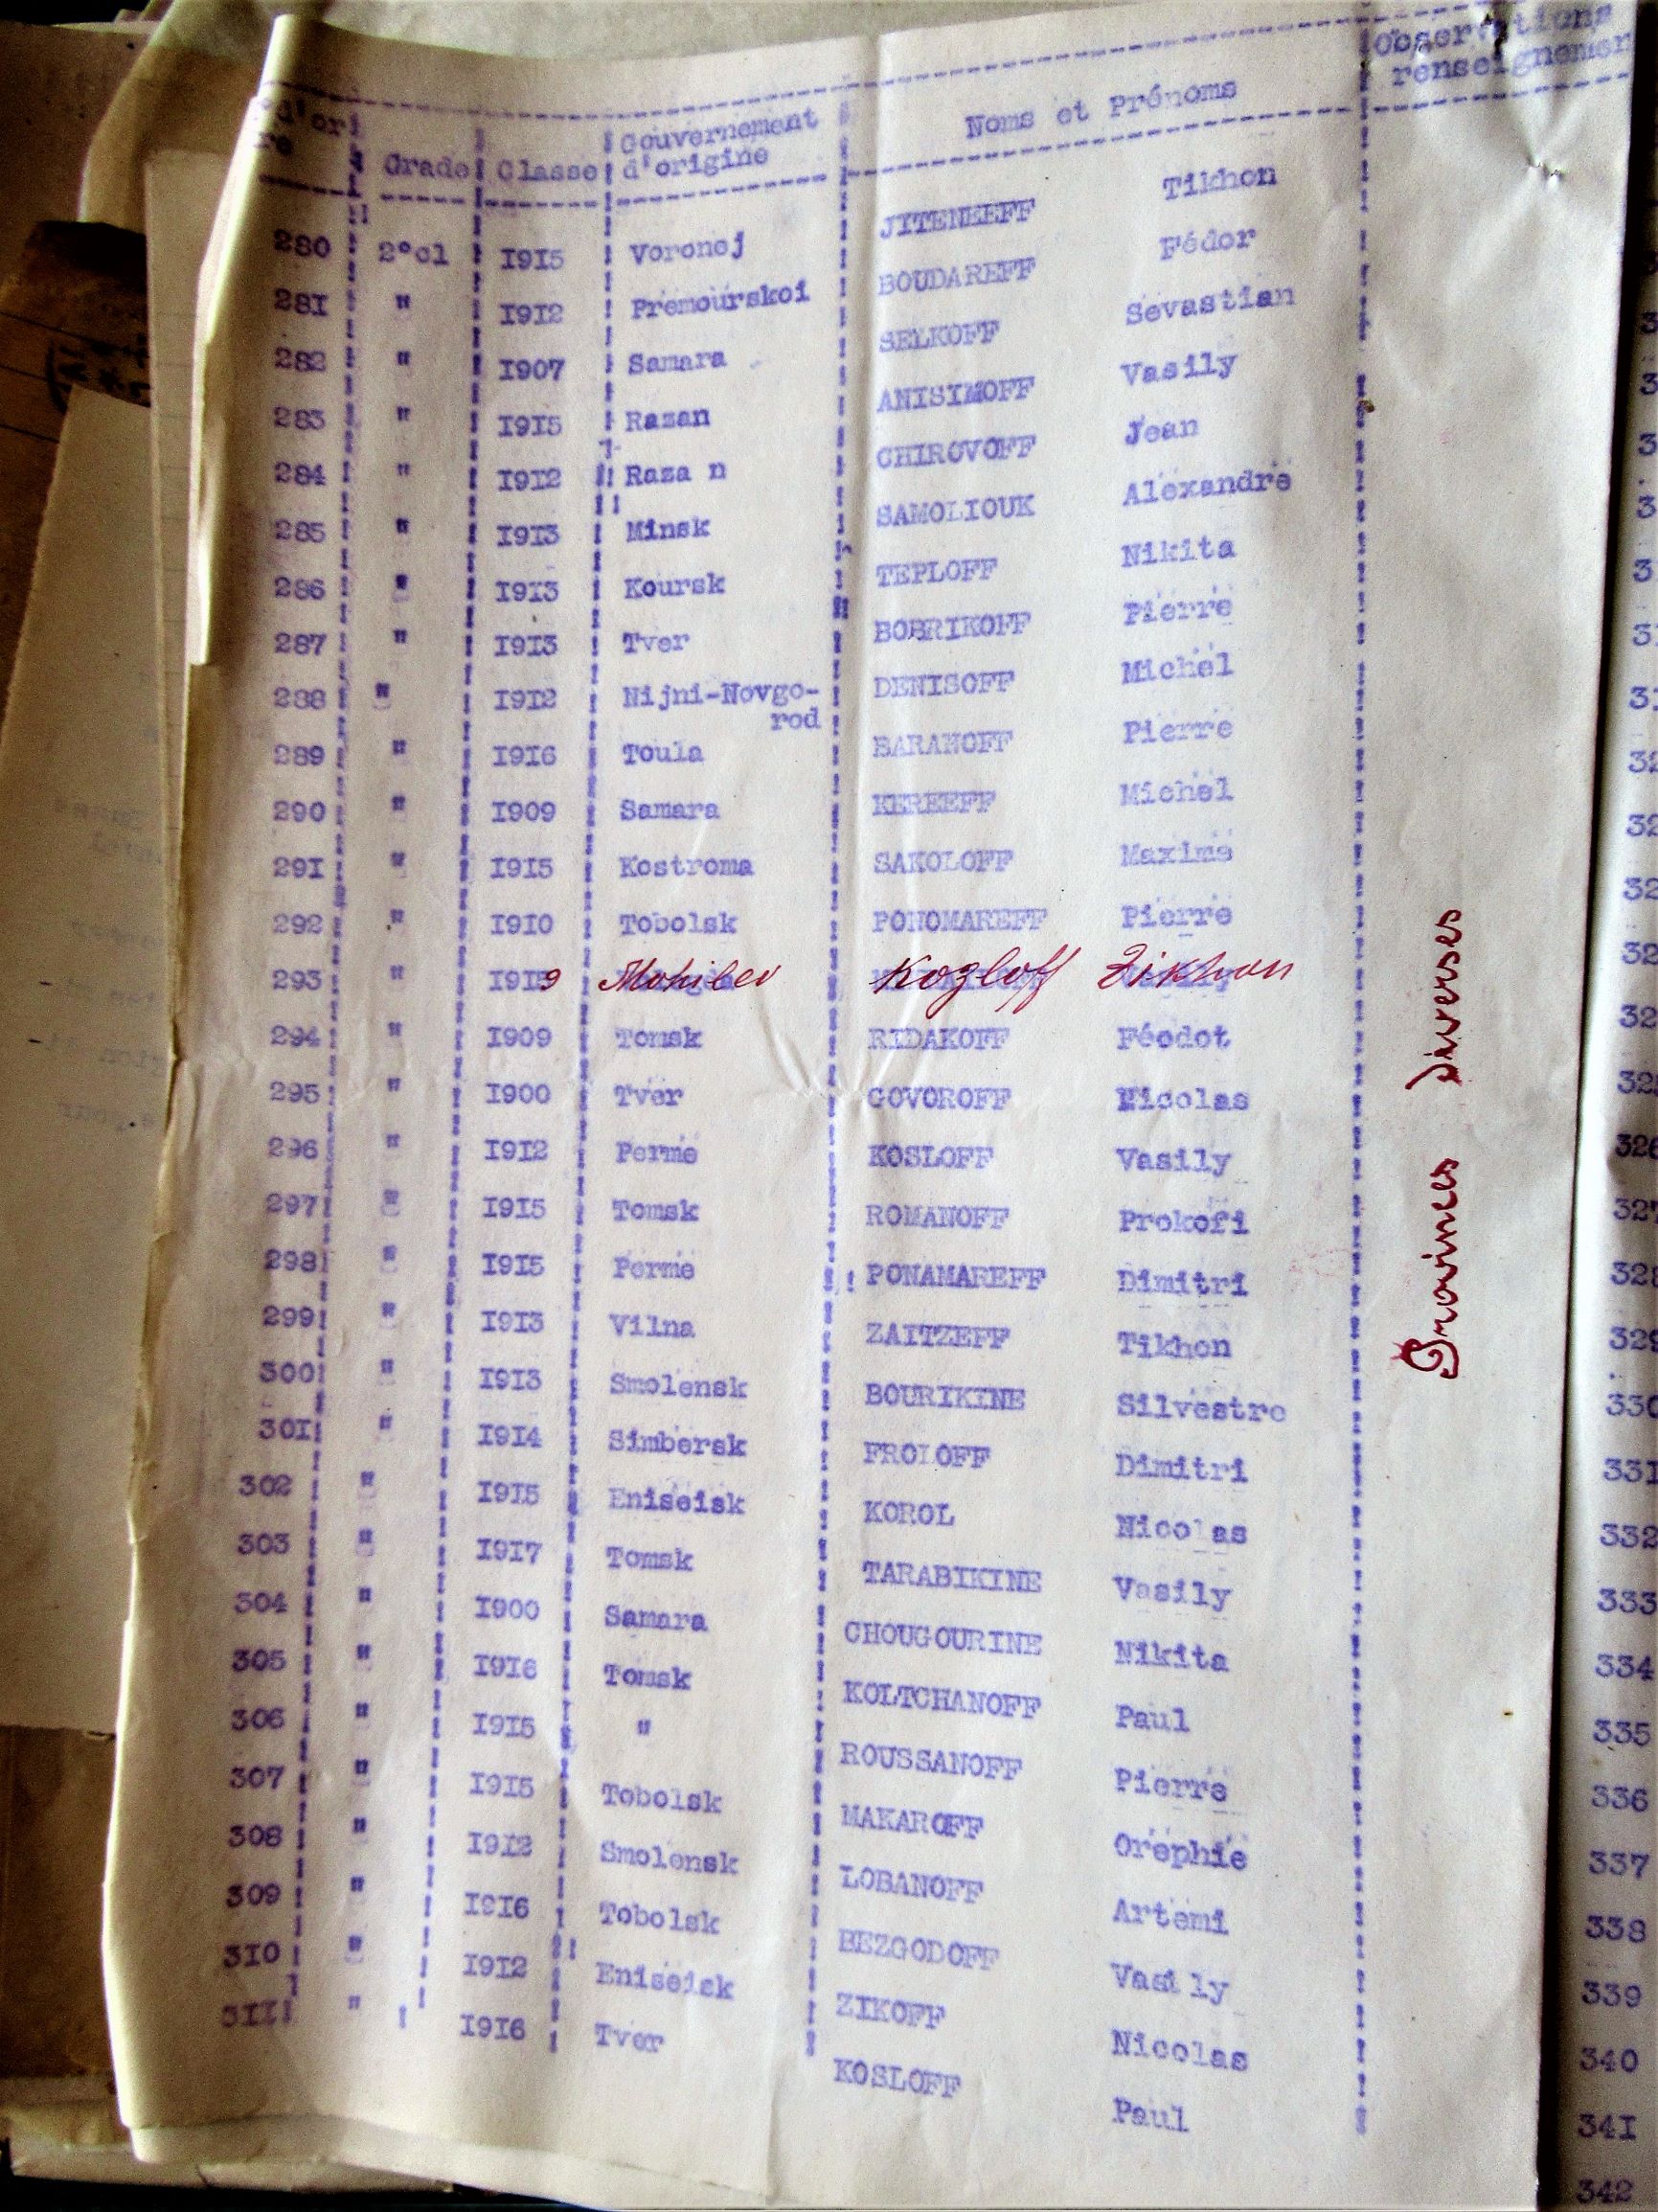 Observations
d'or Grade Classe Gouvernement Noms et Prénoms
re d'origine
280 2°cl I9I5 Voronej JITENEEFF Tikhon
28I " I9I2 Premourskoi BOUDAREFF Fédor
282 " I907 Samara SELKOFF Sevastian
283 " I9I5 Razan ANISIMOFF Vasily
284 " I9I2 Raza n CHIROVOFF Jean
285 " I9I3 Minsk SAMOLIOUK Alexandre
286 " I9I3 Koursk TEPLOFF Nikita
287 " I9I3 Tver BOBRIKOFF Pierre
288 " I9I2 Nijni-Novgo- DENISOFF Michel
rod
289 " I9I6 Toula BARANOFF Pierre
290 " I909 Samara KEREEFF Michel
29I " I9I5 Kostroma SAKOLOFF Maxime
292 " I9I0 Tobolsk PONOMAREFF Pierre
293 " I9I9 Mohilev Kozloff Tikhon
294 " I909 Tomsk RIDAKOFF Féodot
295 " I900 Tver GOVOROFF Nicolas
296 " I9I2 Perme KOSLOFF Vasily
297 " I9I5 Tomsk ROMANOFF Prokofi
298 " I9I5 Perme PONAMAREFF Dimitri
299 " I9I3 Vilna ZAITZEFF Tikhon
300 " I9I3 Smolensk BOURIKINE Silvestre
30I " I9I4 Simbersk FROLOFF Dimitri
302 " I9I5 Eniseisk KOROL Nicolas
303 " I9I7 Tomsk TARABIKINE Vasily
304 " I900 Samara CHOUGOURINE Nikita
305 " I9I6 Tomsk KOLTCHANOFF Paul
306 " I9I5 " ROUSSANOFF Pierre
307 " I9I5 Tobolsk MAKAROFF Orephie
308 " I9I2 Smolensk LOBANOFF Artemi
309 " I9I6 Tobolsk BEZGODOFF Vasily
3I0 " I9I2 Eniseisk ZIKOFF Nicolas
3II " I9I6 Tver KOSLOFF Paul
Provinces diverses
33I
332
333
334
335
336
337
338
339
340
34I
342